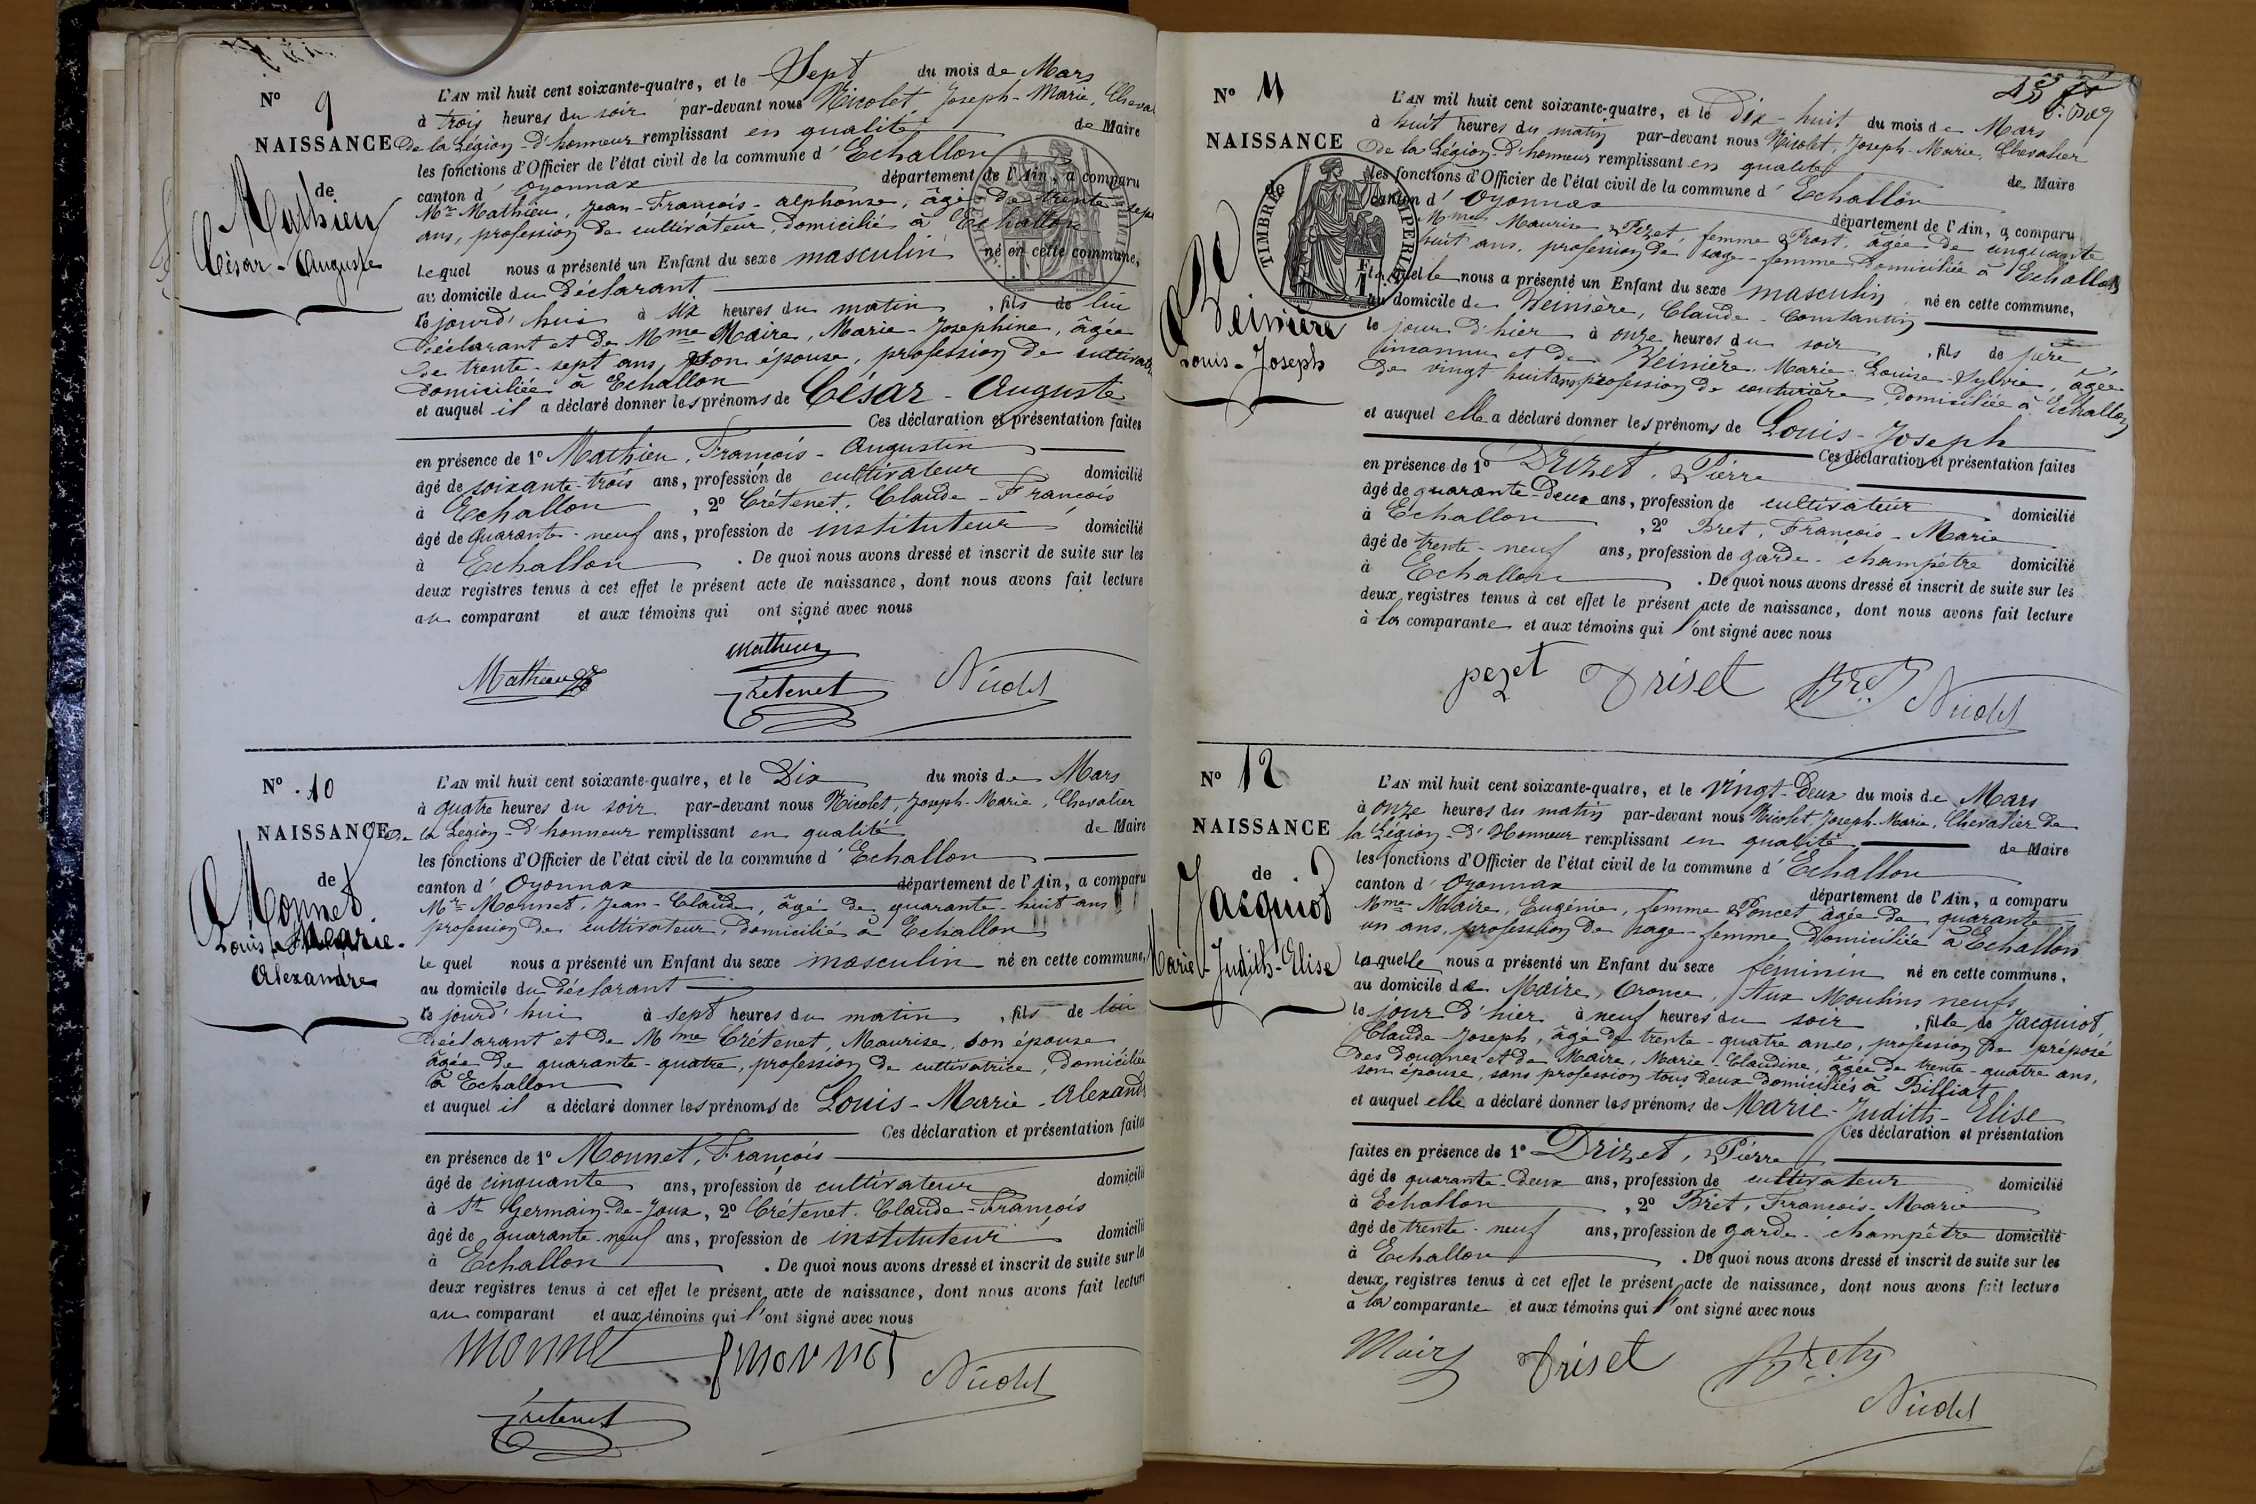 N° 9
NAISSANCE
de
Mathieu
César-Auguste
L'AN mil huit cent soixante-quatre, et le Sept du mois de Mars
à trois heures du soir par-devant nous Nicolet, Joseph-Marie, Cheva
de la Légion-d'honneur remplissant en qualité de Maire
les fonctions d'Officier de l'état civil de la commune d'Echallon
canton d'Oyonnax département de l'Ain, a comparu
Mr Mathieu, Jean-François-alphonse, âgé de trente-sept
ans, profession de cultivateur, domicilié à Echallon
lequel nous a présenté un Enfant du sexe masculin né en cette commune,
au domicile du déclarant
ce jourd'hui à six heures du matin, fils de lui
déclarant et de Mme Maire, Marie-Josephine, âgée
de trente-sept ans, son épouse, profession de cultivat
domiciliée à Echallon
et auquel il a déclaré donner les prénoms de César-Auguste
Ces déclaration et présentation faites
en présence de 1° Mathieu, François-Augustin
âgé de soixante-trois ans, profession de cultivateur domicilié
à Echallon, 2° Crétenet, Claude-François
âgé de quarante-neuf ans, profession de instituteur domicilié
à Echallon. De quoi nous avons dressé et inscrit de suite sur les
deux registres tenus à cet effet le présent acte de naissance, dont nous avons fait lecture
au comparant et aux témoins qui ont signé avec nous
Mathieu
Mathieu Crétenet Nicolet
N° 10
NAISSANCE
de
Monnet
Louis-Marie-
Alexandre
L'AN mil huit cent soixante-quatre, et le Dix du mois de Mars
à quatre heures du soir par-devant nous Nicolet, Joseph-Marie, Chevalier
de la Légion-d'honneur remplissant en qualité de Maire
les fonctions d'Officier de l'état civil de la commune d'Echallon
canton d'Oyonnax département de l'Ain, a comparu
Mr Monnet, Jean-Claude, âgé de quarante-huit ans
profession de cultivateur, domicilié à Echallon
lequel nous a présenté un Enfant du sexe masculin né en cette commune,
au domicile du déclarant
ce jourd'hui à sept heures du matin, fils de lui
déclarant et de Mme Crétenet, Maurise, son épouse
âgée de quarante-quatre, profession de cultivatrice, domiciliée
à Echallon
et auquel il a déclaré donner les prénoms de Louis-Marie-Alexand
Ces déclaration et présentation faites
en présence de 1° Monnet, François
âgé de cinquante ans, profession de cultivateur domicilié
à St Germain-de-Joux, 2° Crétenet, Claude-François
âgé de quarante-neuf ans, profession de instituteur domicilié
à Echallon. De quoi nous avons dressé et inscrit de suite sur les
deux registres tenus à cet effet le présent acte de naissance, dont nous avons fait lecture
au comparant et aux témoins qui l'ont signé avec nous
monnet fmonnet Nicolet
Crétenet
N° 11
NAISSANCE
de
TIMBRE IMPÉRIAL
De
Veinière
Louis-Joseph
L'AN mil huit cent soixante-quatre, et le dix-huit du mois de Mars
à huit heures du matin par-devant nous Nicolet, Joseph-Marie, Chevalier
de la Légion-d'honneur remplissant en qualité de Maire
les fonctions d'Officier de l'état civil de la commune d'Echallon
canton d'Oyonnax département de l'Ain, a comparu
Mme Maurise Pezet, femme Prost, âgée de cinquante
huit ans, profession de sage-femme domiciliée à Echallon
laquelle nous a présenté un Enfant du sexe masculin né en cette commune,
au domicile de Veinière, Claude-Constantin
le jour d'hier à onze heures du soir, fils de père
inconnu et de Veinière, Marie-Louise-Sylvie, âgée
de vingt huit ans, profession de couturière, domiciliée à Echallon
et auquel elle a déclaré donner les prénoms de Louis-Joseph
Ces déclaration et présentation faites
en présence de 1° Drizet, Pierre
âgé de quarante-deux ans, profession de cultivateur domicilié
à Echallon, 2° Bret, François-Marie
âgé de trente-neuf ans, profession de garde-champêtre domicilié
à Echallon. De quoi nous avons dressé et inscrit de suite sur les
deux registres tenus à cet effet le présent acte de naissance, dont nous avons fait lecture
à la comparante et aux témoins qui l'ont signé avec nous
pezet Driset Bret Nicolet
N° 12
NAISSANCE
de
Jacquiot
Marie-Judith-Elise
L'AN mil huit cent soixante-quatre, et le vingt-deux du mois de Mars
à onze heures du matin par-devant nous Nicolet, Joseph-Marie, Chevalier de
la Légion-d'Honneur remplissant en qualité de Maire
les fonctions d'Officier de l'état civil de la commune d'Echallon
canton d'Oyonnax département de l'Ain, a comparu
Mme Maire, Eugénie, femme Poncet âgée de quarante
un ans, profession de sage-femme, domiciliée à Echallon
laquelle nous a présenté un Enfant du sexe féminin né en cette commune,
au domicile de Maire, Oronce, Aux Moulins neufs
le jour d'hier à neuf heures du soir, fille de Jacquiot,
Claude-Joseph, âgé de trente-quatre ans, profession de préposé
des douanes et de Maire, Marie-Claudine, âgée de trente-quatre ans,
son épouse, sans profession tous deux domiciliés à Billiat
et auquel elle a déclaré donner les prénoms de Marie-Judith-Elise
Ces déclaration et présentation
faites en présence de 1° Drizet, Pierre
âgé de quarante-deux ans, profession de cultivateur domicilié
à Echallon, 2° Bret, François-Marie
âgé de trente-neuf ans, profession de garde-champêtre domicilié
à Echallon. De quoi nous avons dressé et inscrit de suite sur les
deux registres tenus à cet effet le présent acte de naissance, dont nous avons fait lecture
à la comparante et aux témoins qui l'ont signé avec nous
Maire Driset Bret
Nicolet